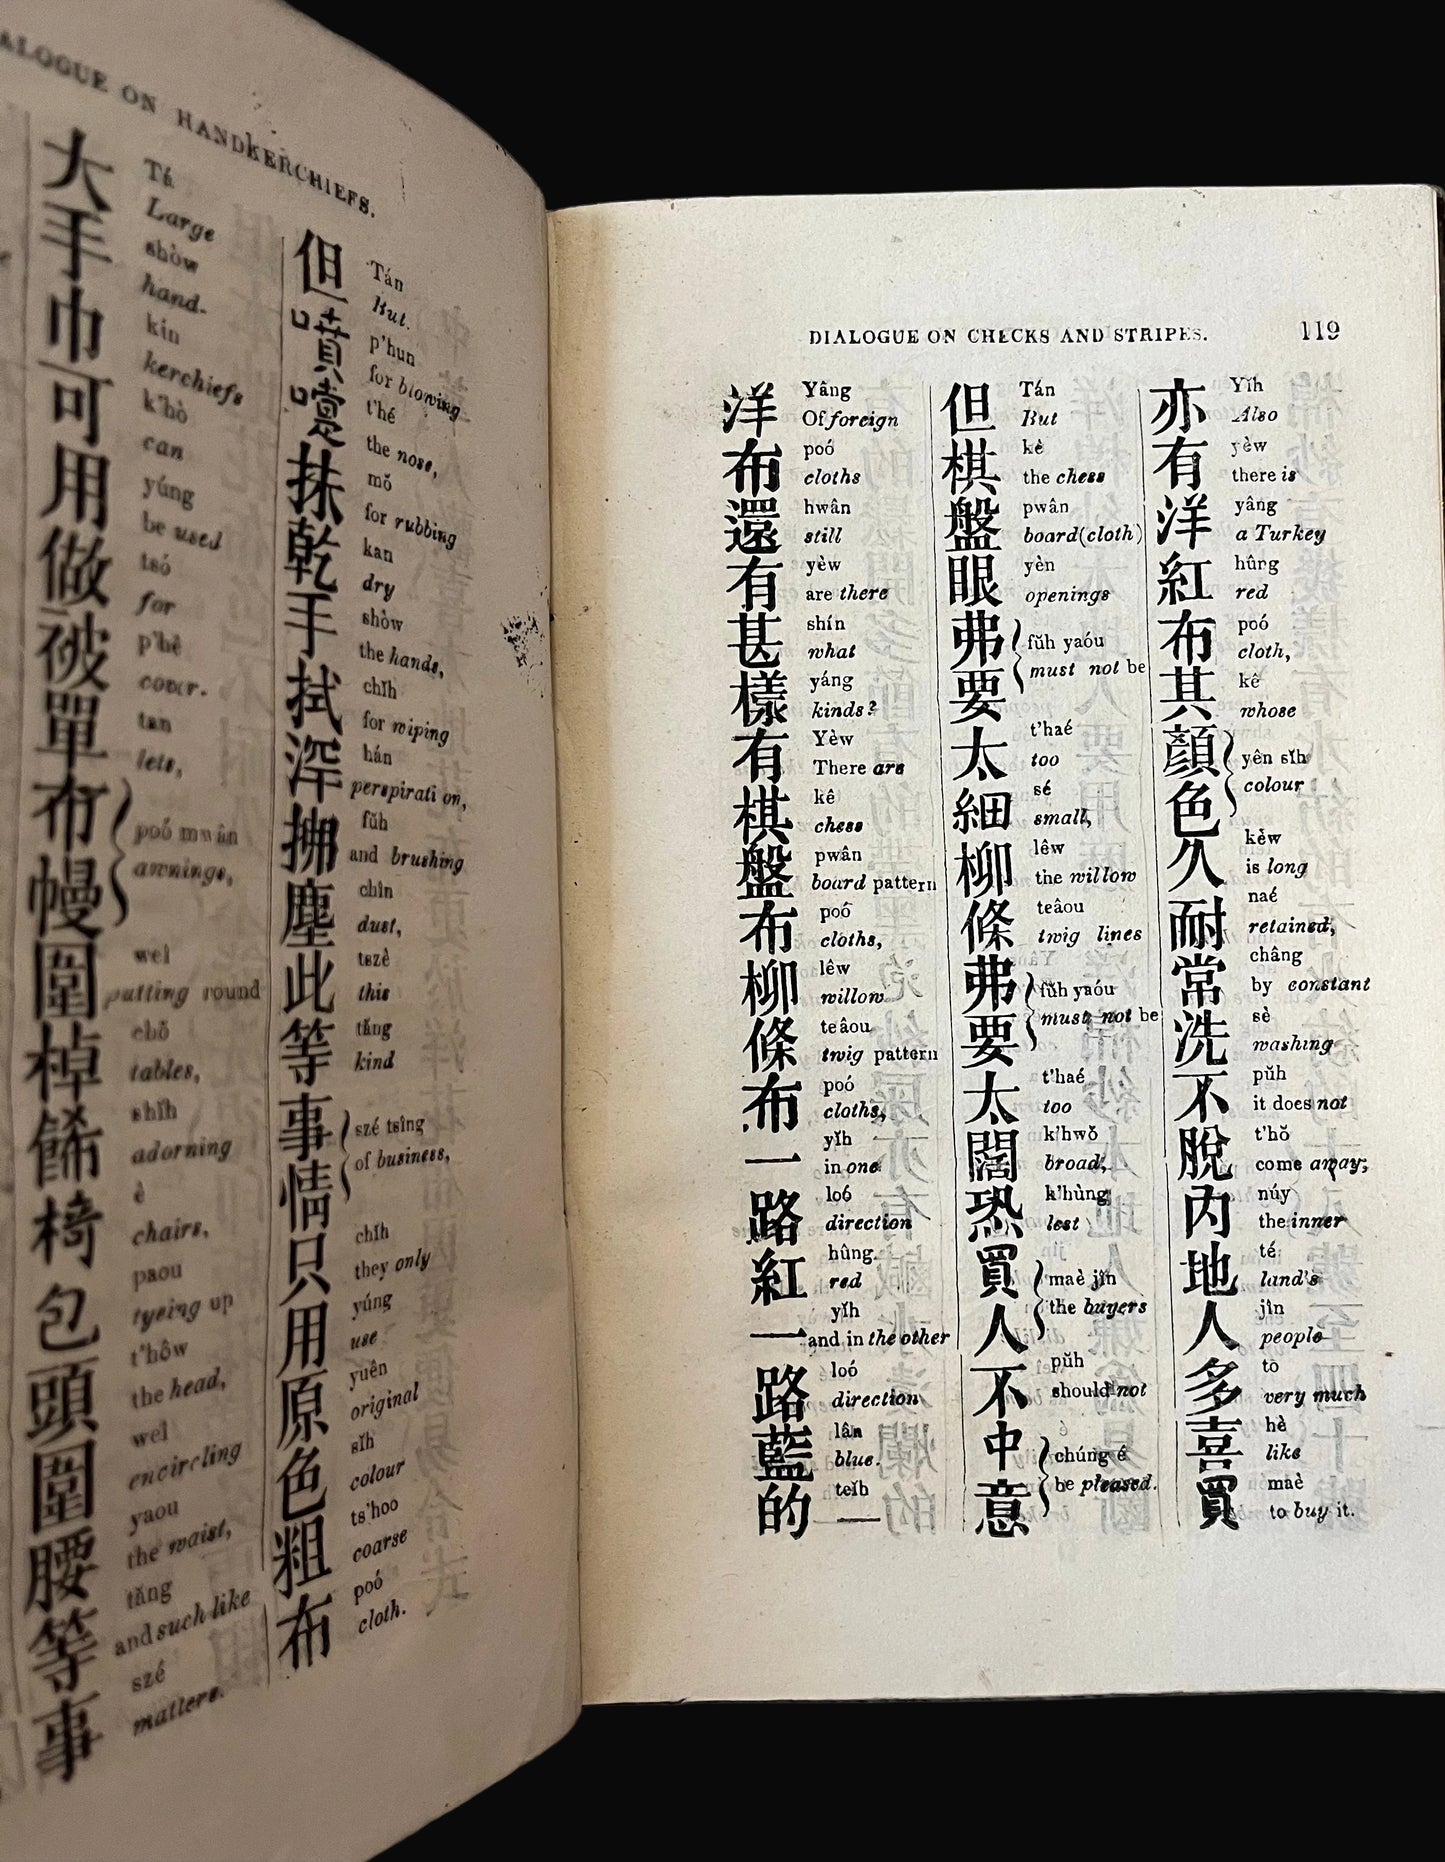 DIALOGUE ON HANDKERCHIEFS.
但噴嚏抹乾手拭深拂塵此等事情只用原色粗布
Tán
But.
p'hun
for blowing
t'hé
the nose,
mŏ
for rubbing
kan
dry
shòw
the hands,
chĭh
for wiping
hán
perspirati on,
fŭh
and brushing
chîn
dust,
tszè
this
tăng
kind
szé tsîng
of business,
chĭh
they only
yúng
use
yuên
original
sĭh
colour
ts'hoo
coarse
poó
cloth.
大手巾可用做被單布幔圍棹餙椅包頭圍腰等事
Tá
Large
shòw
hand-
kin
kerchiefs
k'hò
can
yúng
be used
tsó
for
p'hê
cover-
tan
lets,
poó mwân
awnings,
weî
putting round
chŏ
tables,
shĭh
adorning
è
chairs,
paou
tyeing up
t'hôw
the head,
weî
encircling
yaou
the waist,
tăng
and such like
szé
matters.
DIALOGUE ON CHECKS AND STRIPES. 119
亦有洋紅布其顏色久耐常洗不脫內地人多喜買
Yĭh
Also
yèw
there is
yâng
a Turkey
hûng
red
poó
cloth,
kê
whose
yên sĭh
colour
kèw
is long
naé
retained,
châng
by constant
sè
washing
pŭh
it does not
t'hŏ
come away;
núy
the inner
té
land's
jîn
people
to
very much
hè
like
maè
to buy it.
但棋盤眼弗要太細柳條弗要太闊恐買人不中意
Tán
But
kè
the chess
pwân
board (cloth)
yèn
openings
fŭh yaóu
must not be
t'haé
too
sé
small,
lêw
the willow
teâou
twig lines
fŭh yaóu
must not be
t'haé
too
k'hwŏ
broad,
k'hùng
lest
maè jîn
the buyers
pŭh
should not
chúng é
be pleased.
洋布還有甚樣有棋盤布柳條布一路紅一路藍的
Yâng
Of foreign
poó
cloths
hwân
still
yèw
are there
shín
what
yáng
kinds?
Yèw
There are
kê
chess
pwân
board pattern
poó
cloths,
lêw
willow
teâou
twig pattern
poó
cloths,
yĭh
in one
loó
direction
hûng.
red
yĭh
and in the other
loó
direction
lân
blue.
teĭh
—